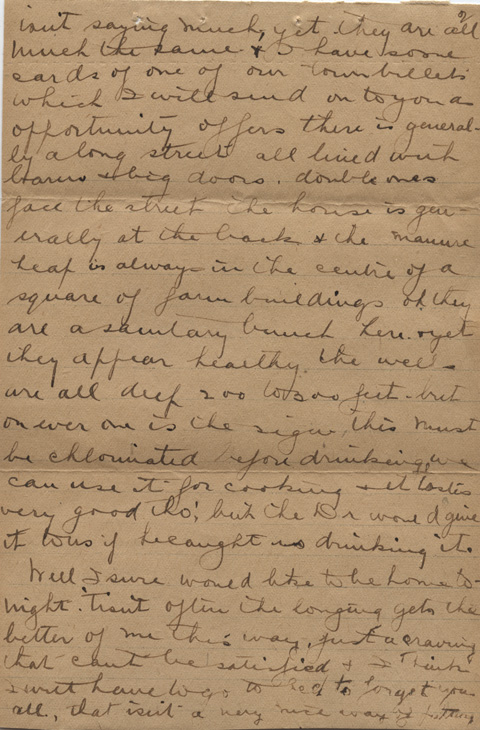 2
isn't saying much, yet they are all
much the same & I have some
cards of one of our town billets
which I will send on to you as
opportunity offers there is general-
ly a long street all lined with
barns & big doors. double ones
face the street the house is gen-
erally at the back & the manure
heap is always in the centre of a
square of farm buildings oh they
are a sanitary bunch here. & yet
they appear healthy. the wells
are all deep 200 to 300 feet - but
on ever one is the sign, this must
be chlorinated before drinking, we
can use it for cooking & it tastes
very good tho', but the Dr would give
it to us if he caught us drinking it.
Well I sure would like to be home to-
night. 'tisnt often the longing gets the
better of me this way, just a craving
that can't be satisfied & I think
I will have to go to bed to forget you
all, that isn't a very nice way of putting